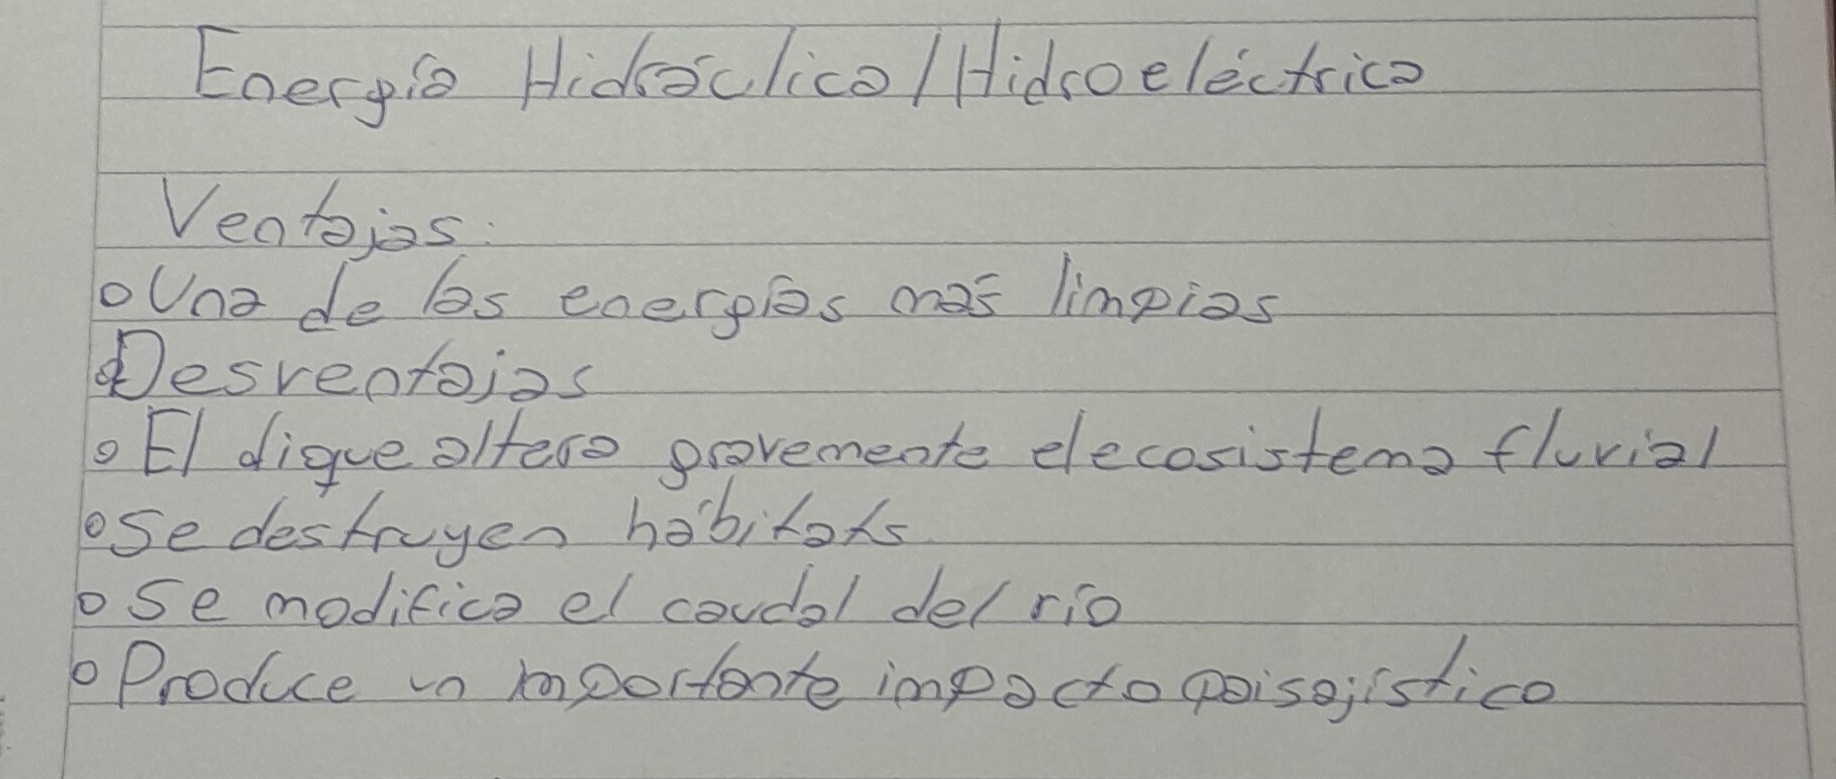 Energía Hidráulica/Hidroeléctrica
Ventajas:
o Una de las energías más limpias
Desventajas
o El dique altera gravemente el ecosistema fluvial
o Se destruyen hábitats
o Se modifica el caudal del río
o Produce un importante impacto paisajístico